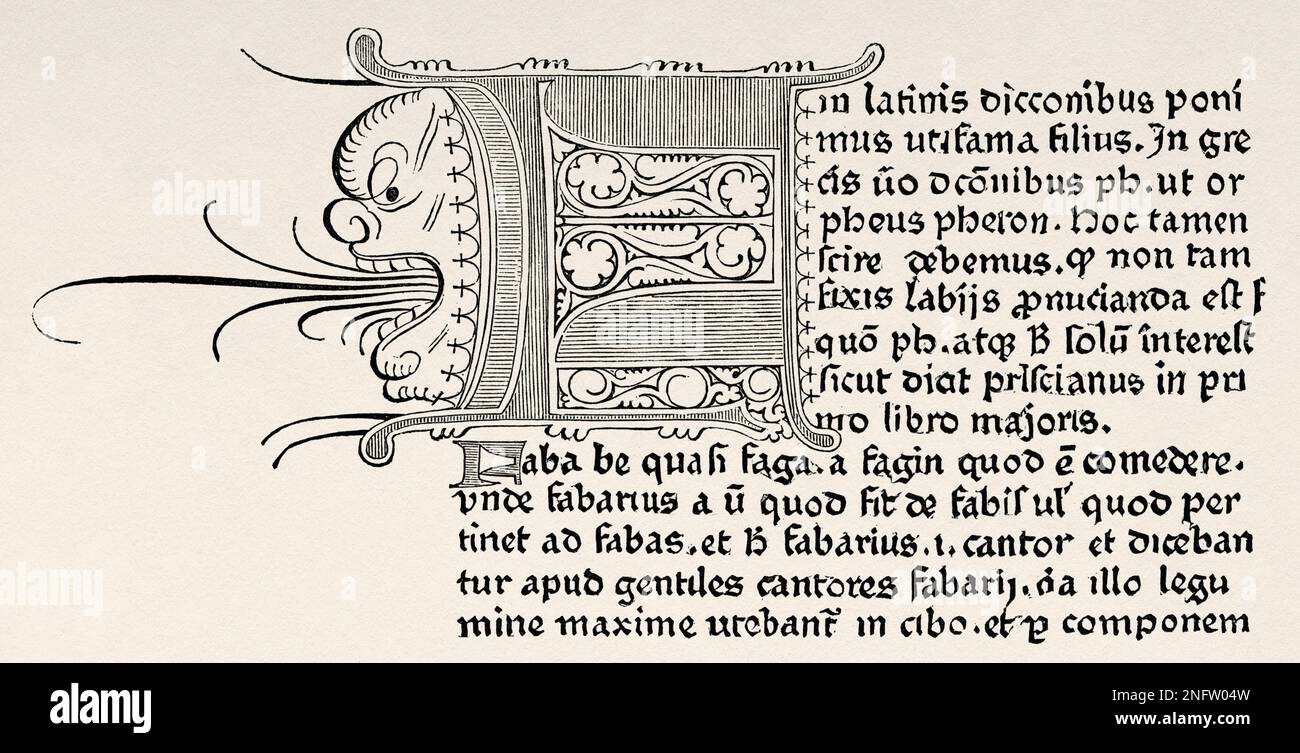 F in latinis dicconibus poni
mus ut.fama filius. In gre
cis ūo dcōnibus ph.ut or
pheus pheron. Hoc tamen
scire debemus. non tam
fixis labijs nucianda est f
quō ph. atq B solū interest
sicut dicit priscianus in pri
mo libro majoris.
Faba be quasi faga.a fagin quod ē comedere.
vnde fabarius a ū quod fit de fabis ul' quod per
tinet ad fabas.et B fabarius.i.cantor et diceban
tur apud gentiles cantores fabarij. illo legu
mine maxime utebant̄ in cibo.et componem
alamy
Image ID: 2NFW04W
www.alamy.com